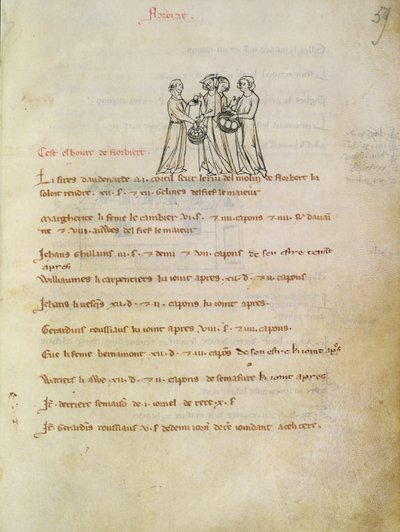 Florbiert.
59
C'est el bourc de florbiert.
Li sires daudenarde a .i. cortil seur le riu del molin de florbert ki
soloit rendre .xii. s̄ et .xii. gelines del fief le maieur
Margherite li feme le cambier .vi. s̄. et .iiii. capons et .iiii. d'avai
ne et .viii. auwes del fief le maieur
Jehans Ghillains .iii. s̄. et demi et .vii. capons de son estre tenant
apres
Williaumes li carpentiers ki ioint apres .xii. d. et .ii. capons
Jehans li vesqs .xii. d. et .ii. capons ki ioint apres.
Gerardins roussiaus ki ioint apres .viii. s̄. et .iiii. capons.
Eue li feme bernamont .xii. d. et .iii. capōs de son estre ki ioint apṣ
Watiers li awe .xii. d. et .ii. capons de semasure ki ioint apres
It̄. derriere semaison de .i. iornel de tere .x. s̄
It̄. Gerardīs roussiaus .v. s̄ de demi iorn̄. de t̄re ioindant a cele ters.